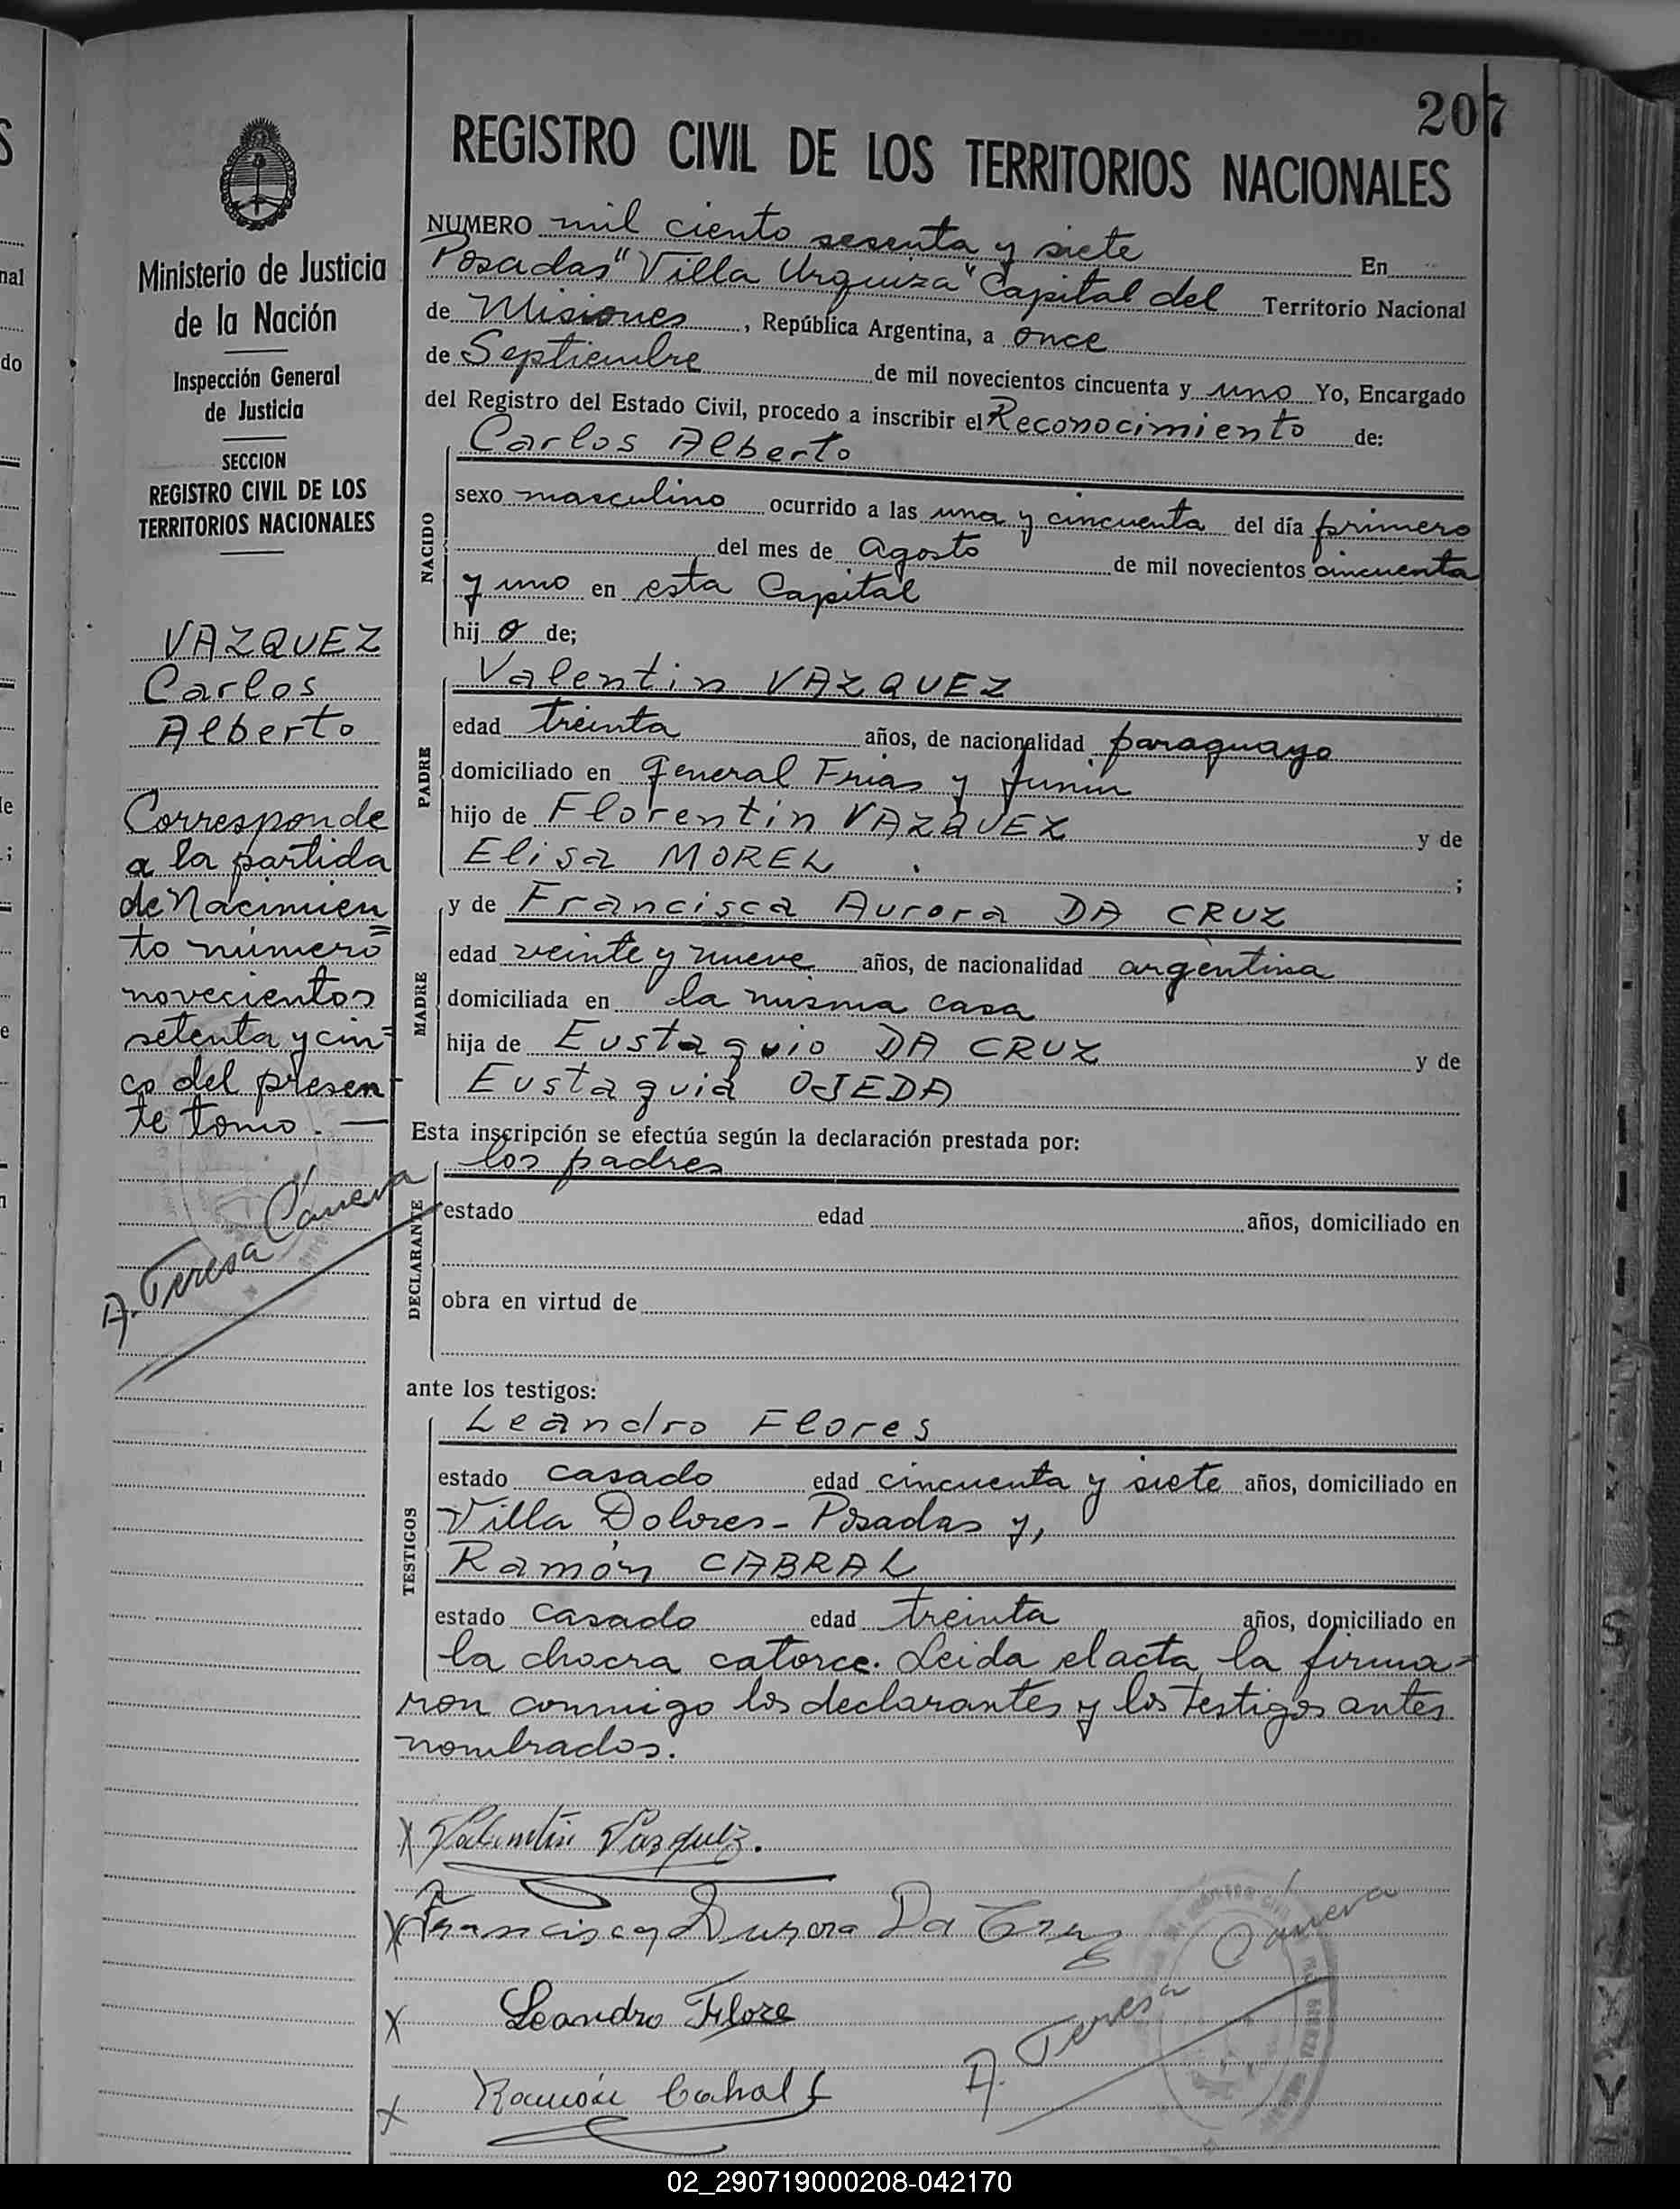 207
REGISTRO CIVIL DE LOS TERRITORIOS NACIONALES
Ministerio de Justicia
de la Nación
Inspección General
de Justicia
SECCION
REGISTRO CIVIL DE LOS
TERRITORIOS NACIONALES
VAZQUEZ
Carlos
Alberto
Corresponde
a la partida
de Nacimien=
to número
novecientos
setenta y cin=
co del presen-
te tomo. —
A. Teresa Cáneva
NUMERO mil ciento sesenta y siete En
Posadas "Villa Urquiza" Capital del Territorio Nacional
de Misiones, República Argentina, a once
de Septiembre de mil novecientos cincuenta y uno Yo, Encargado
del Registro del Estado Civil, procedo a inscribir el Reconocimiento de:
Carlos Alberto
NACIDO
sexo masculino ocurrido a las una y cincuenta del día primero
del mes de Agosto de mil novecientos cincuenta
y uno en esta Capital
hij o de;
Valentin VAZQUEZ
PADRE
edad treinta años, de nacionalidad paraguayo
domiciliado en General Frias y Junin
hijo de Florentin VAZQUEZ y de
Elisa MOREL ;
y de Francisca Aurora DA CRUZ
MADRE
edad veinte y nueve años, de nacionalidad argentina
domiciliada en la misma casa
hija de Eustaquio DA CRUZ y de
Eustaquia OJEDA
Esta inscripción se efectúa según la declaración prestada por:
los padres
DECLARANTE
estado edad años, domiciliado en
obra en virtud de
ante los testigos:
Leandro Flores
TESTIGOS
estado casado edad cincuenta y siete años, domiciliado en
Villa Dolores - Posadas y,
Ramón CABRAL
estado casado edad treinta años, domiciliado en
la chacra catorce. Leida el acta, la firma=
ron conmigo los declarantes y los testigos antes
nombrados.
X Valentin Vazquez.
X Francisca Aurora Da Cruz
X Leandro Flore
X Ramón Cabral
A. Teresa Cáneva
02_290719000208-042170